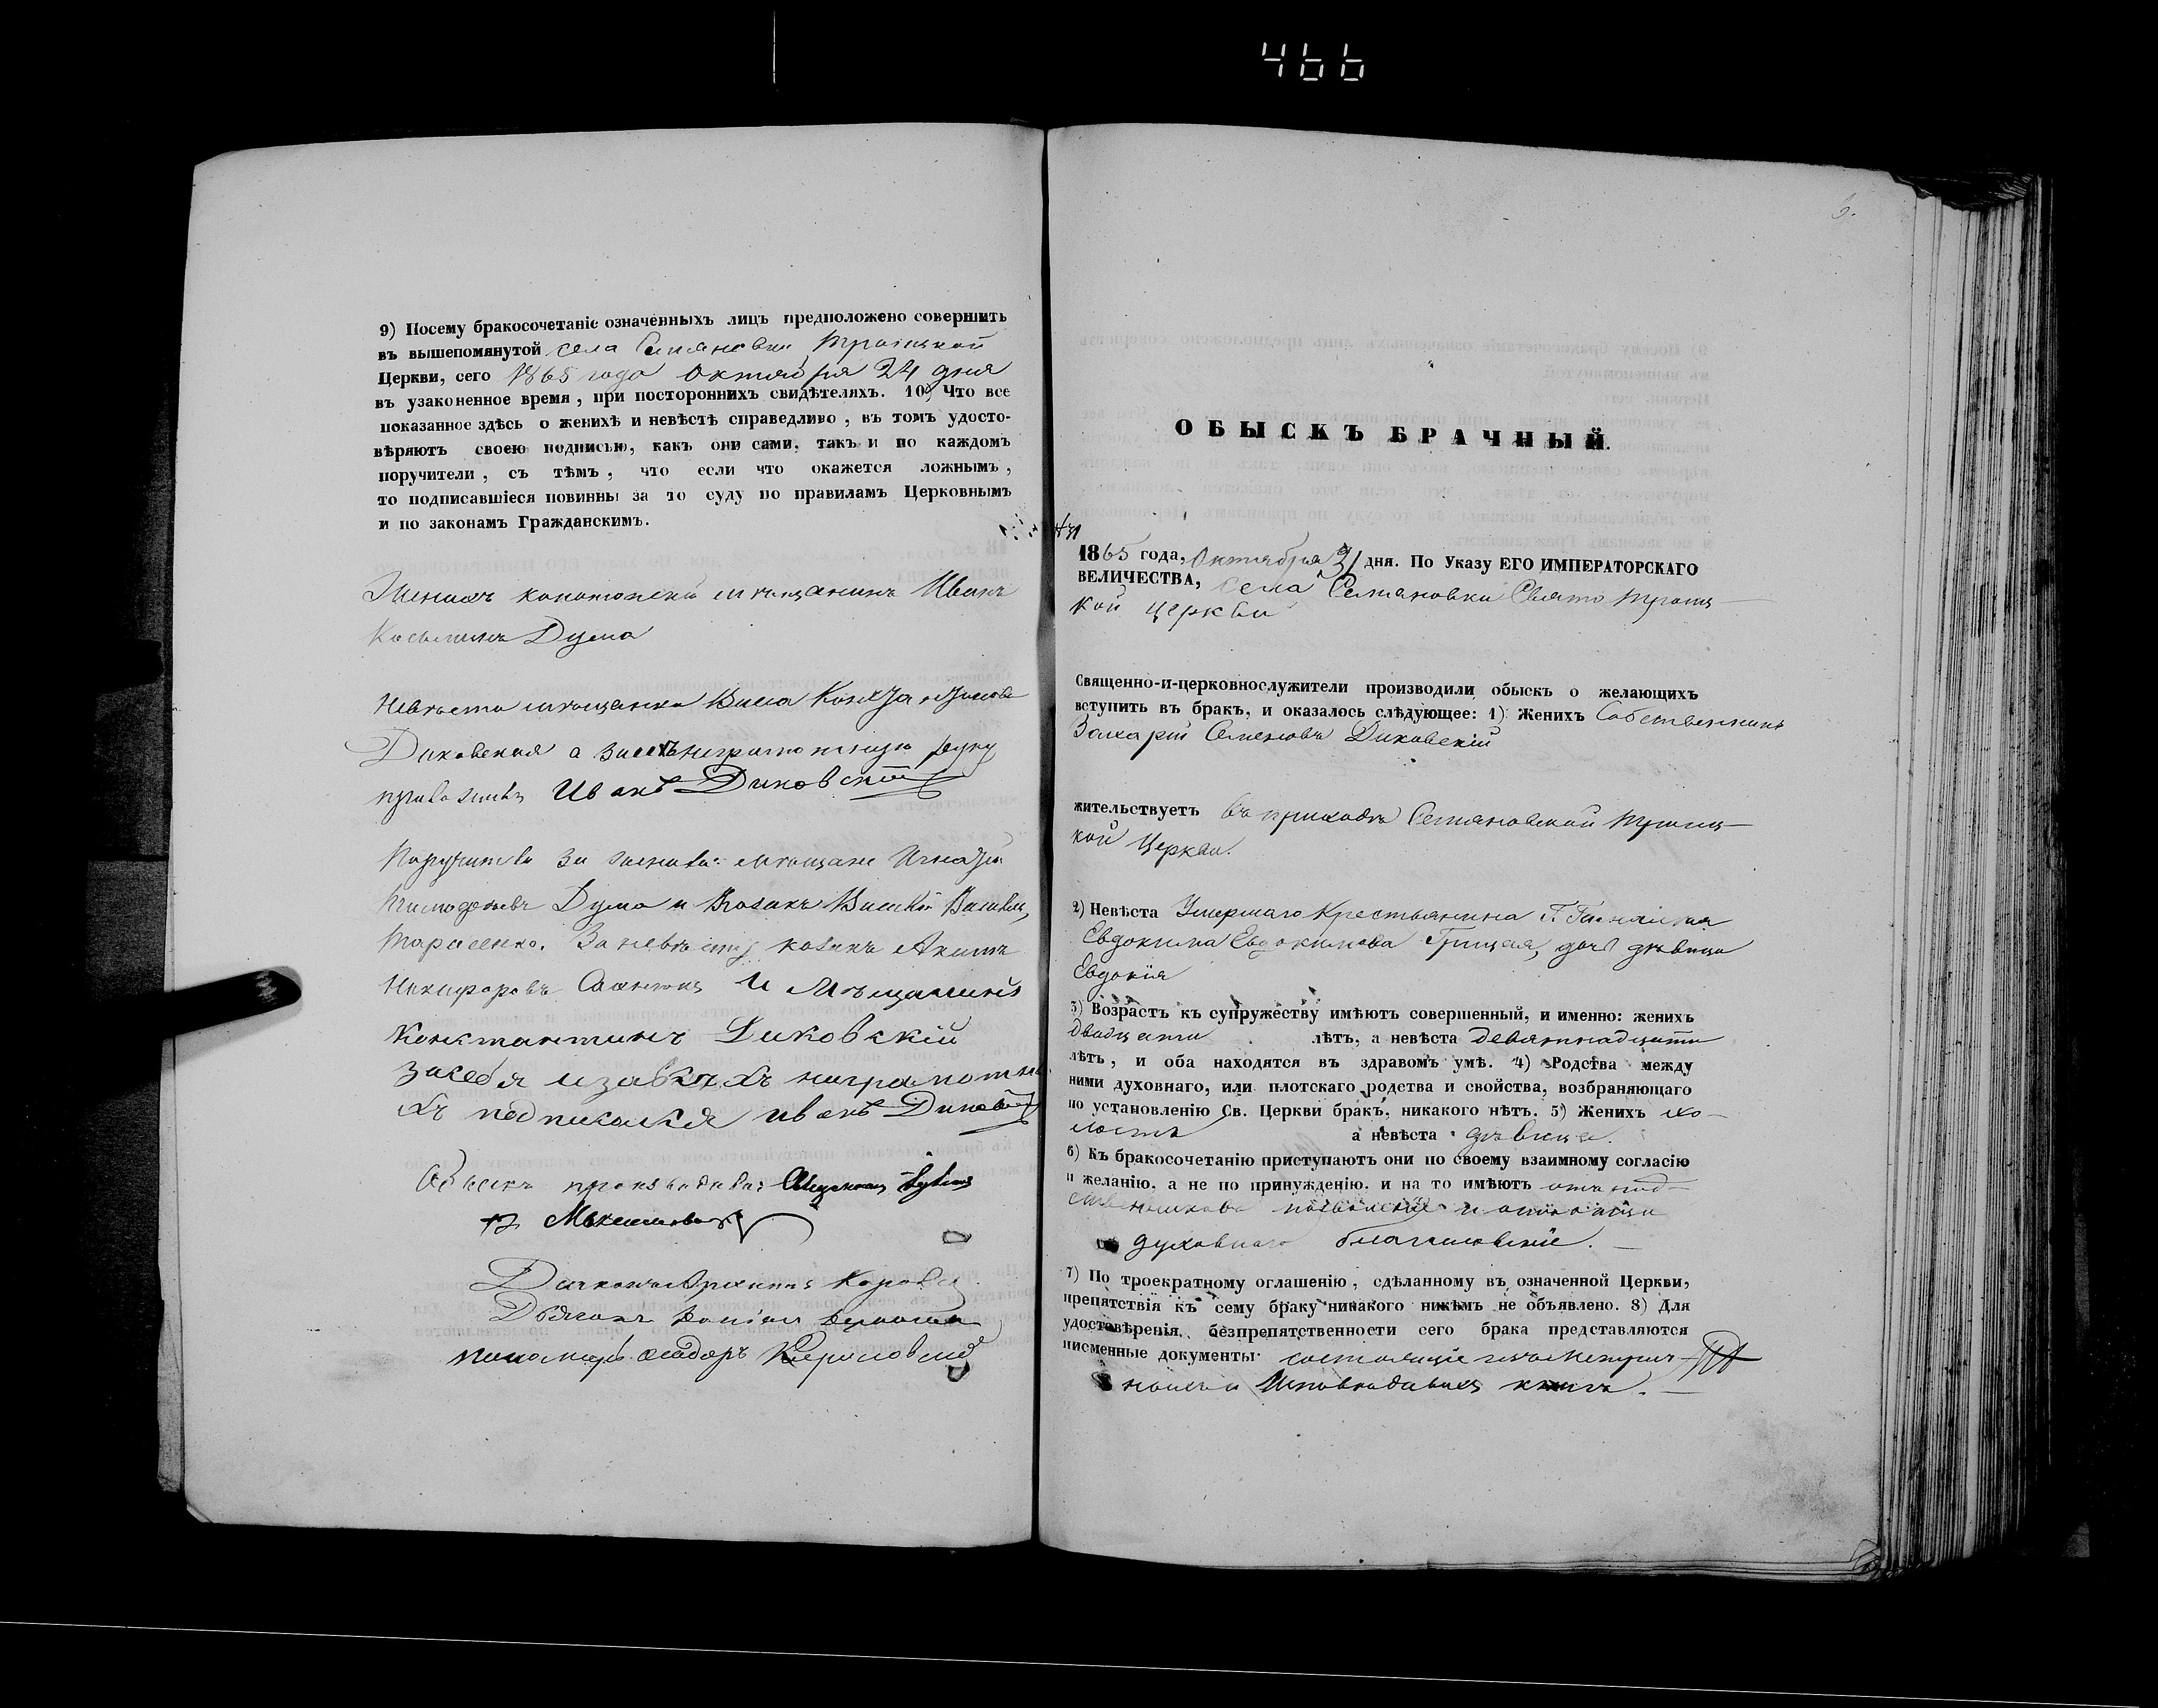 466
9) Посему бракосочетаніе означенныхъ лицъ предположено совершить
въ вышепомянутой села Семяновки Троицкой
Церкви, сего 1865 года Октября 24 дня
въ узаконенное время, при постороннихъ свидѣтеляхъ. 10) Что все
показанное здѣсь о женихѣ и невѣстѣ справедливо, въ томъ удосто-
вѣряютъ своею подписью, какъ они сами, такъ и по каждомъ
поручители, съ тѣмъ, что если что окажется ложнымъ,
то подписавшіеся повинны за то суду по правиламъ Церковнымъ
и по законамъ Гражданскимъ.
Женихъ конотопскій мѣщанинъ Иванъ
Косьминъ Дума
Невѣста мѣщанка
Диковская а руку
приложилъ Иванъ Диковскій
мѣщане Игнатій
Тимофеевъ Дума и Козакъ Василій
Тарасенко. За невѣсту козакъ Акимъ
Никифоровъ и Мѣщанинъ
Константинъ Диковскій
за себя и за всѣхъ неграмотны
хъ подписался Иванъ Диковскій
Обыскъ производили: Священникъ
Діаконъ
Дьячокъ
пономарь
6.
ОБЫСКЪ БРАЧНЫЙ.
1865 года, Октября 31 дня. По Указу ЕГО ИМПЕРАТОРСКАГО
ВЕЛИЧЕСТВА, села Семяновки Свято Троиц-
кой церкви
Священно-и-церковнослужители производили обыскъ о желающихъ
вступить въ бракъ, и оказалось слѣдующее: 1) Женихъ Собственникъ
Захарій Семеновъ Диковскій
жительствуетъ въ приходѣ Семяновской Троиц-
кой Церкви.
2) Невѣста Умершаго Крестьянина
Евдокима Евдокимова Грицая, дочь дѣвица
Евдокія
3) Возрастъ къ супружеству имѣютъ совершенный, и именно: женихъ
двадцати лѣтъ, а невѣста девятнадцати
лѣтъ, и оба находятся въ здравомъ умѣ. 4) Родства между
ними духовнаго, или плотскаго родства и свойства, возбраняющаго
по установленію Св. Церкви бракъ, никакого нѣтъ. 5) Женихъ хо-
лостъ а невѣста дѣвица.
6) Къ бракосочетанію приступаютъ они по своему взаимному согласію
и желанію, а не по принужденію, и на то имѣютъ отъ
позволеніе и отъ отца
духовнаго благословеніе.
7) По троекратному оглашенію, сдѣланному въ означенной Церкви,
препятствія къ сему браку никакого никѣмъ не объявлено. 8) Для
удостовѣренія безпрепятственности сего брака представляются
писменные документы: состоящіе изъ Метрич-
ной и Исповѣдальныхъ книгъ.